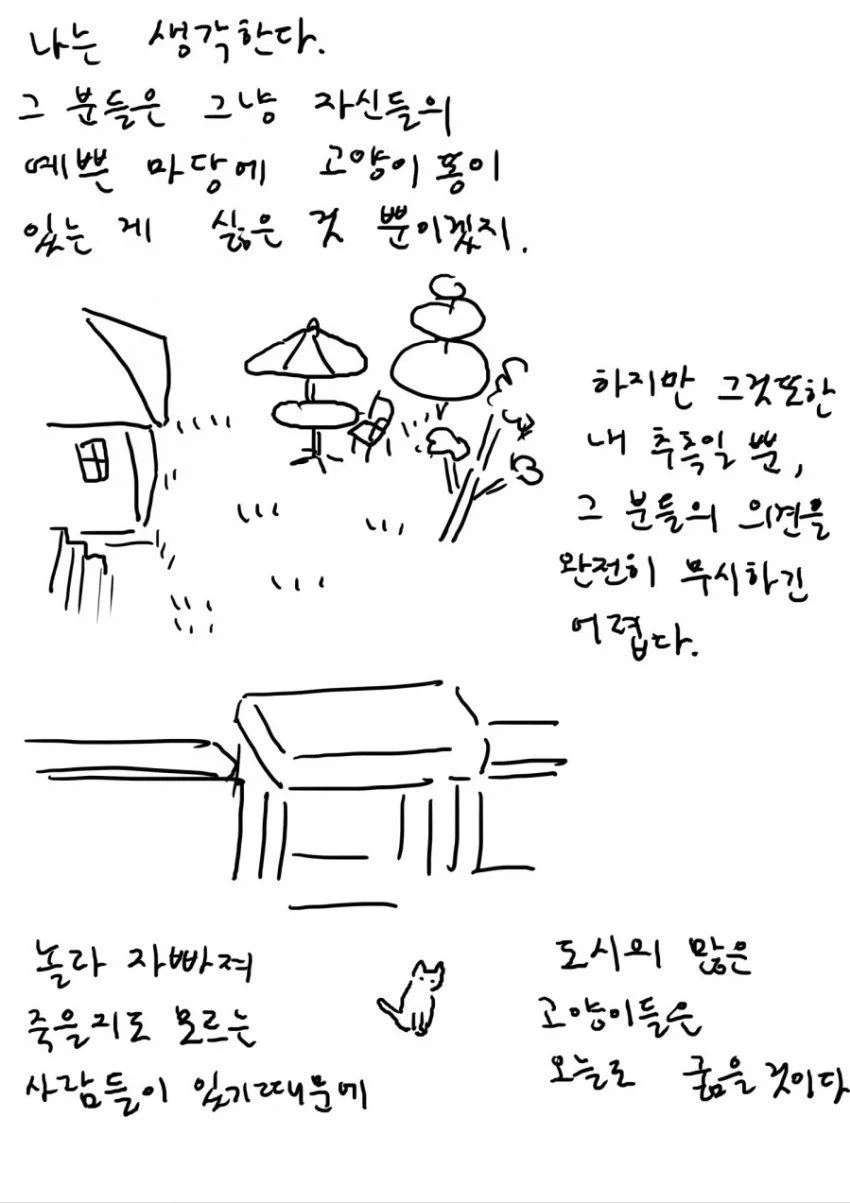 나는 생각한다.
그 분들은 그냥 자신들의
예쁜 마당에 고양이 똥이
있는 게 싫은 것 뿐이겠지.
하지만 그것또한
내 추측일 뿐,
그 분들의 의견을
완전히 무시하긴
어렵다.
놀라 자빠져
죽을지도 모르는
사람들이 있기때문에
도시의 많은
고양이들은
오늘도 굶을 것이다